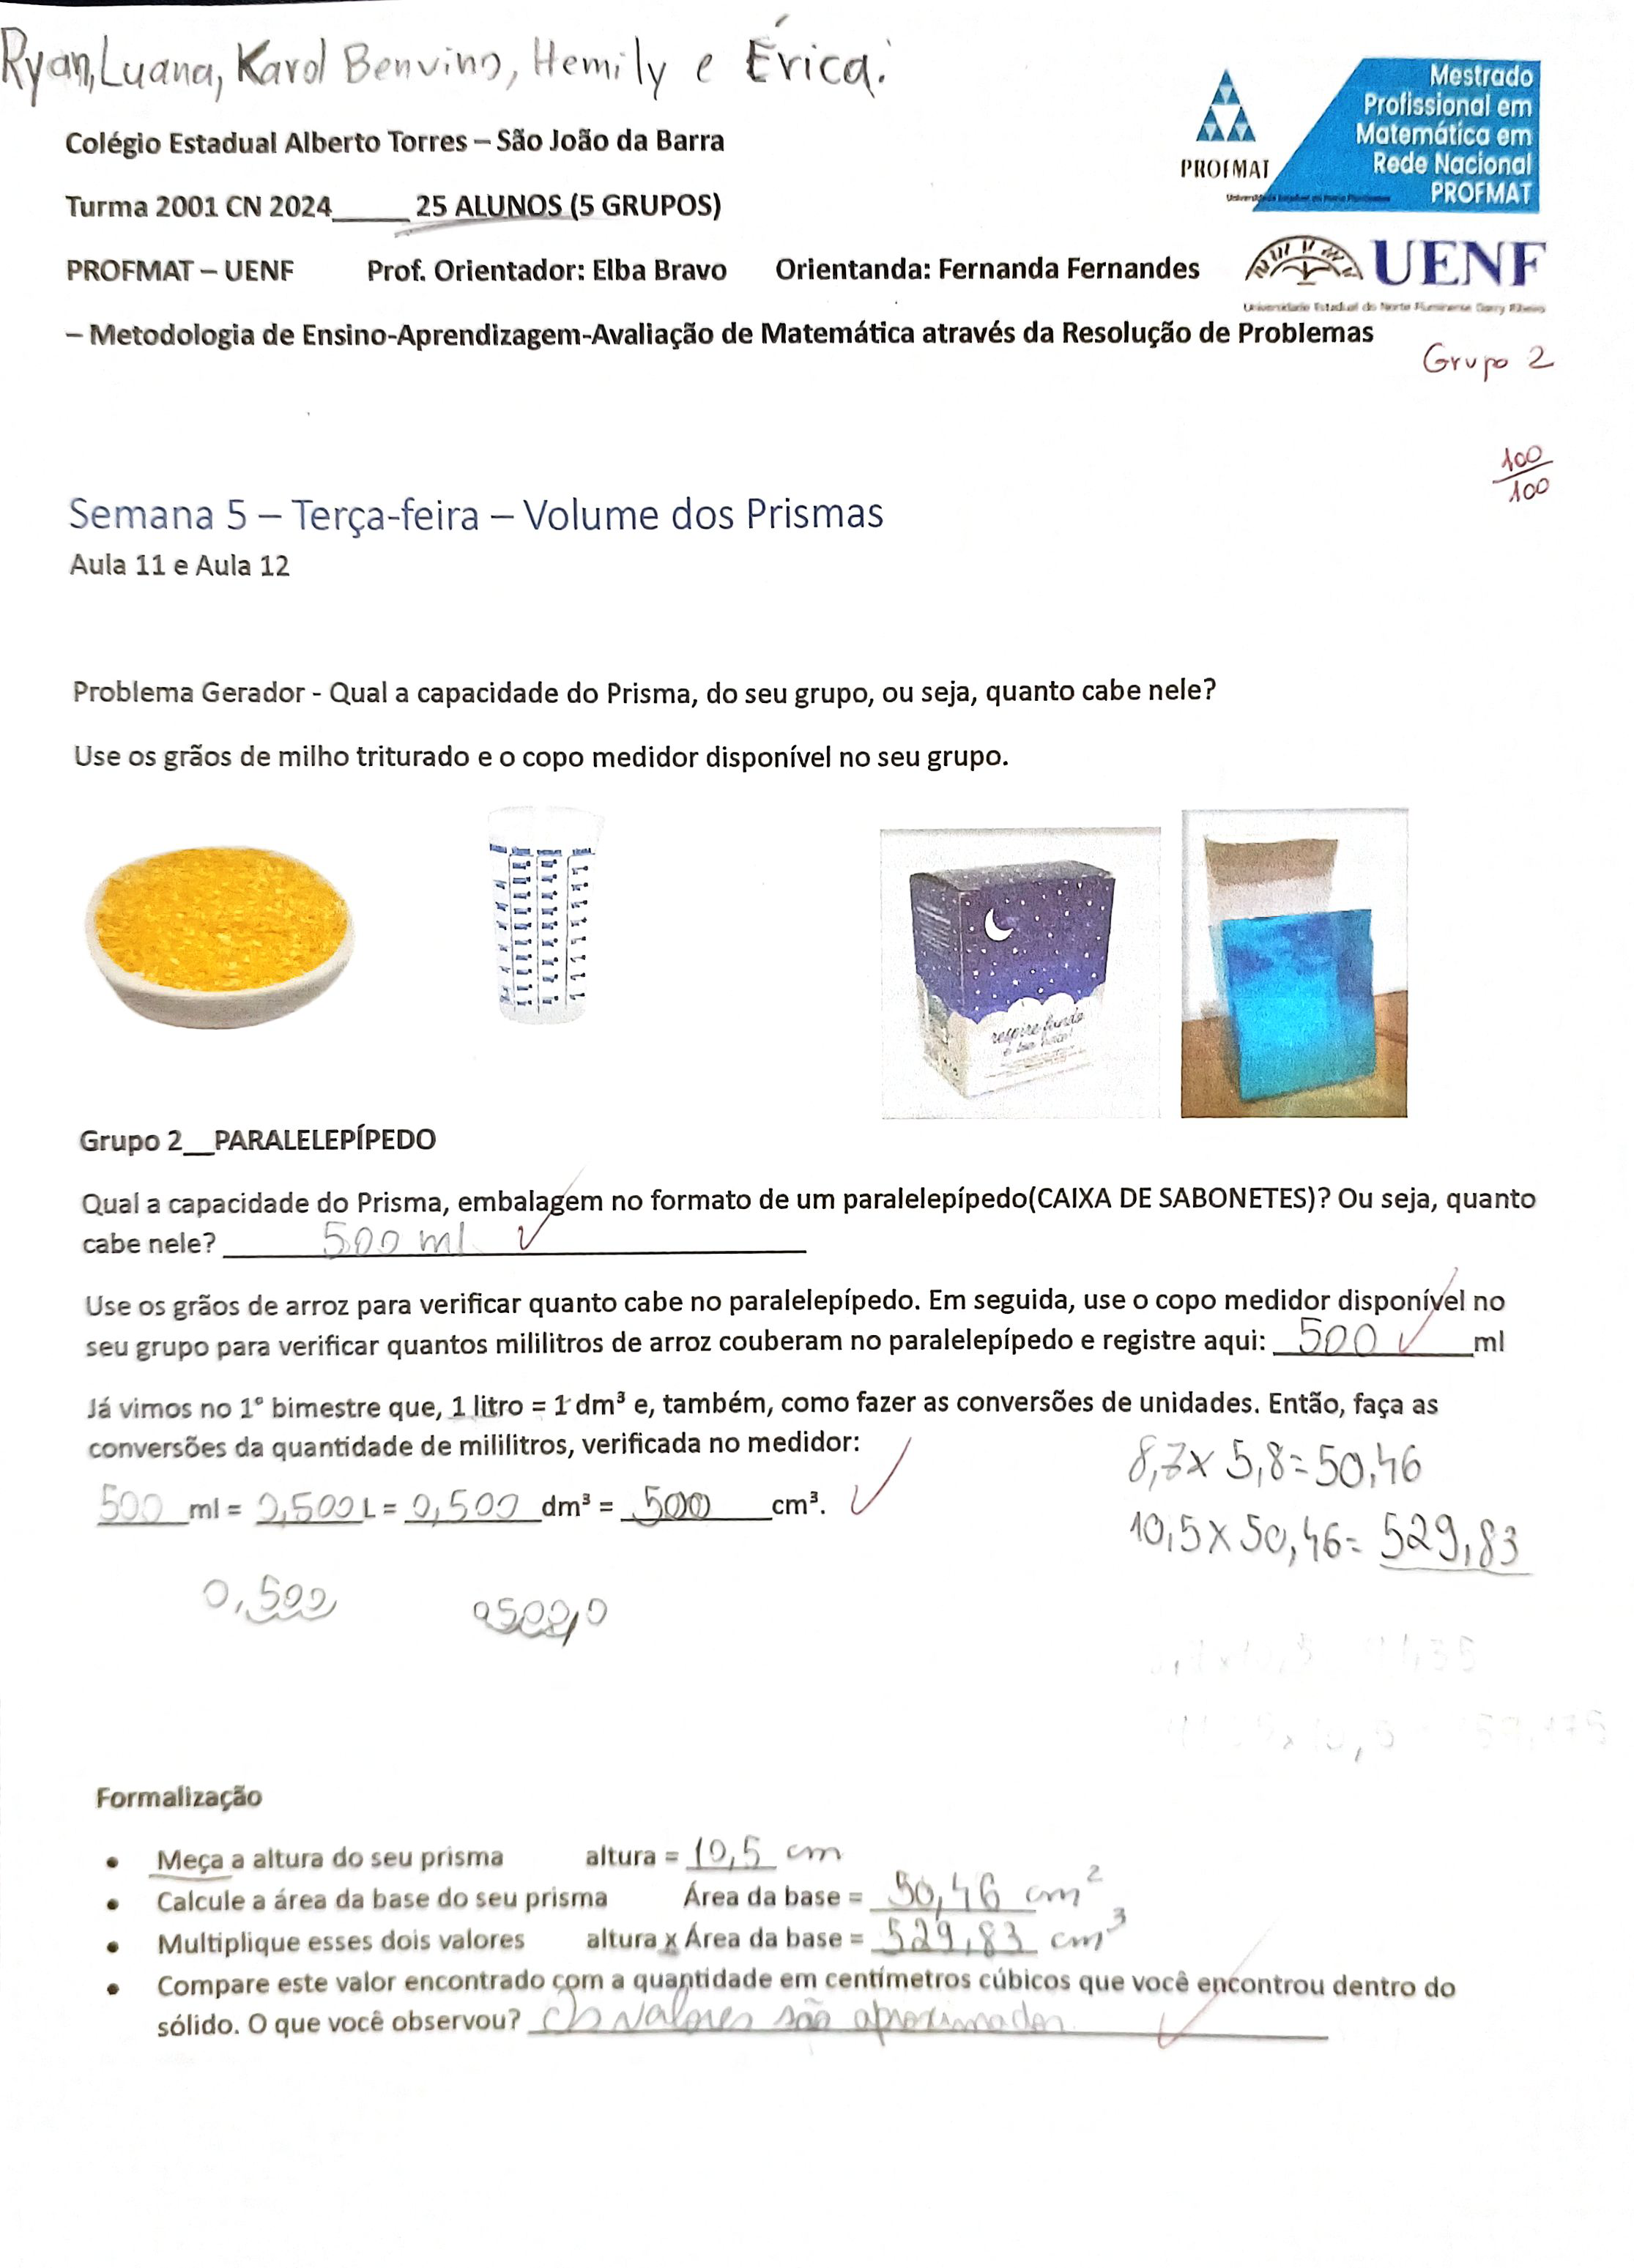 Ryan, Luana, Karol Benvino, Hemily e Érica.
Mestrado
Profissional em
Matemática em
Rede Nacional
PROFMAT
PROFMAT
Colégio Estadual Alberto Torres – São João da Barra
Turma 2001 CN 2024_____ 25 ALUNOS (5 GRUPOS)
PROFMAT – UENF Prof. Orientador: Elba Bravo Orientanda: Fernanda Fernandes
UENF
Universidade Estadual do Norte Fluminense Darcy Ribeiro
– Metodologia de Ensino-Aprendizagem-Avaliação de Matemática através da Resolução de Problemas
Grupo 2
100
100
Semana 5 – Terça-feira – Volume dos Prismas
Aula 11 e Aula 12
Problema Gerador - Qual a capacidade do Prisma, do seu grupo, ou seja, quanto cabe nele?
Use os grãos de milho triturado e o copo medidor disponível no seu grupo.
respire fundo
Grupo 2__PARALELEPÍPEDO
Qual a capacidade do Prisma, embalagem no formato de um paralelepípedo(CAIXA DE SABONETES)? Ou seja, quanto
cabe nele? 500 ml
Use os grãos de arroz para verificar quanto cabe no paralelepípedo. Em seguida, use o copo medidor disponível no
seu grupo para verificar quantos mililitros de arroz couberam no paralelepípedo e registre aqui: 500 ml
Já vimos no 1° bimestre que, 1 litro = 1 dm³ e, também, como fazer as conversões de unidades. Então, faça as
conversões da quantidade de mililitros, verificada no medidor:
8,7 x 5,8 = 50,46
500 ml = 0,500 L = 0,500 dm³ = 500 cm³.
10,5 x 50,46 = 529,83
0,500 0500,0
Formalização
• Meça a altura do seu prisma altura = 10,5 cm
• Calcule a área da base do seu prisma Área da base = 50,46 cm²
• Multiplique esses dois valores altura x Área da base = 529,83 cm³
• Compare este valor encontrado com a quantidade em centímetros cúbicos que você encontrou dentro do
sólido. O que você observou? Os valores são aproximados